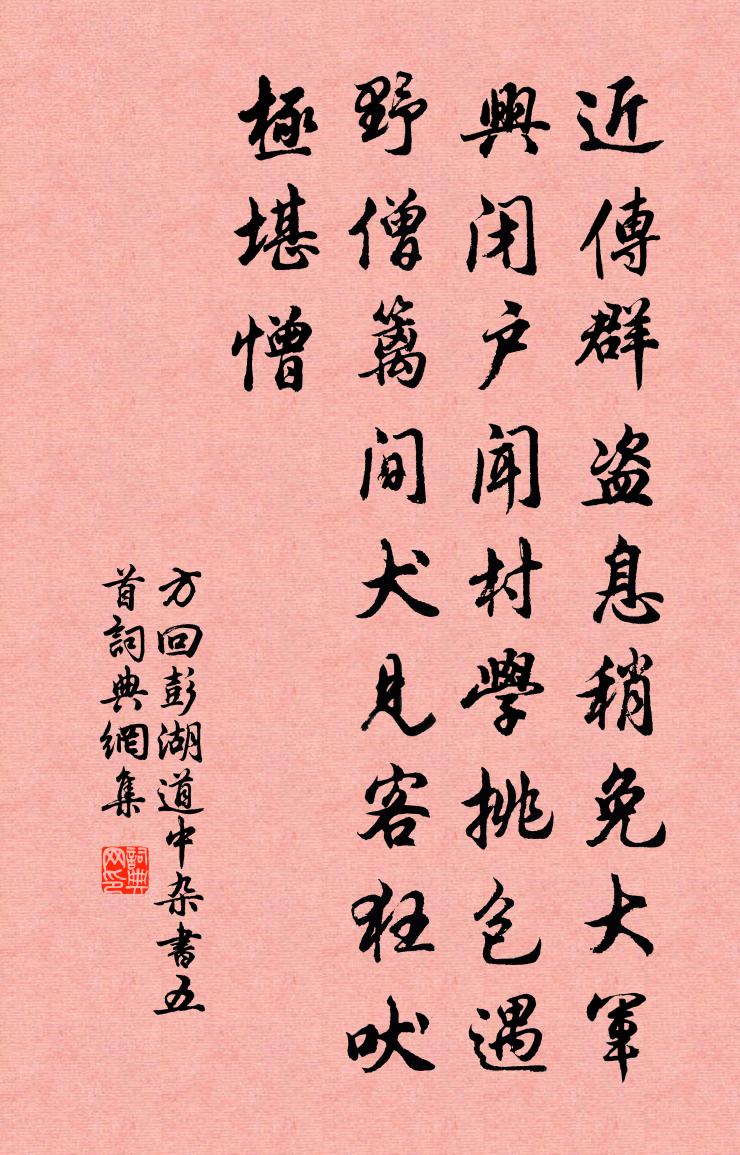 近傳群盗息稍免大軍
興闭户聞村學挑包遇
野僧籬间犬見客狂吠
極堪憎
方回彭湖道中杂書五
首詞典網集
詞典
网印